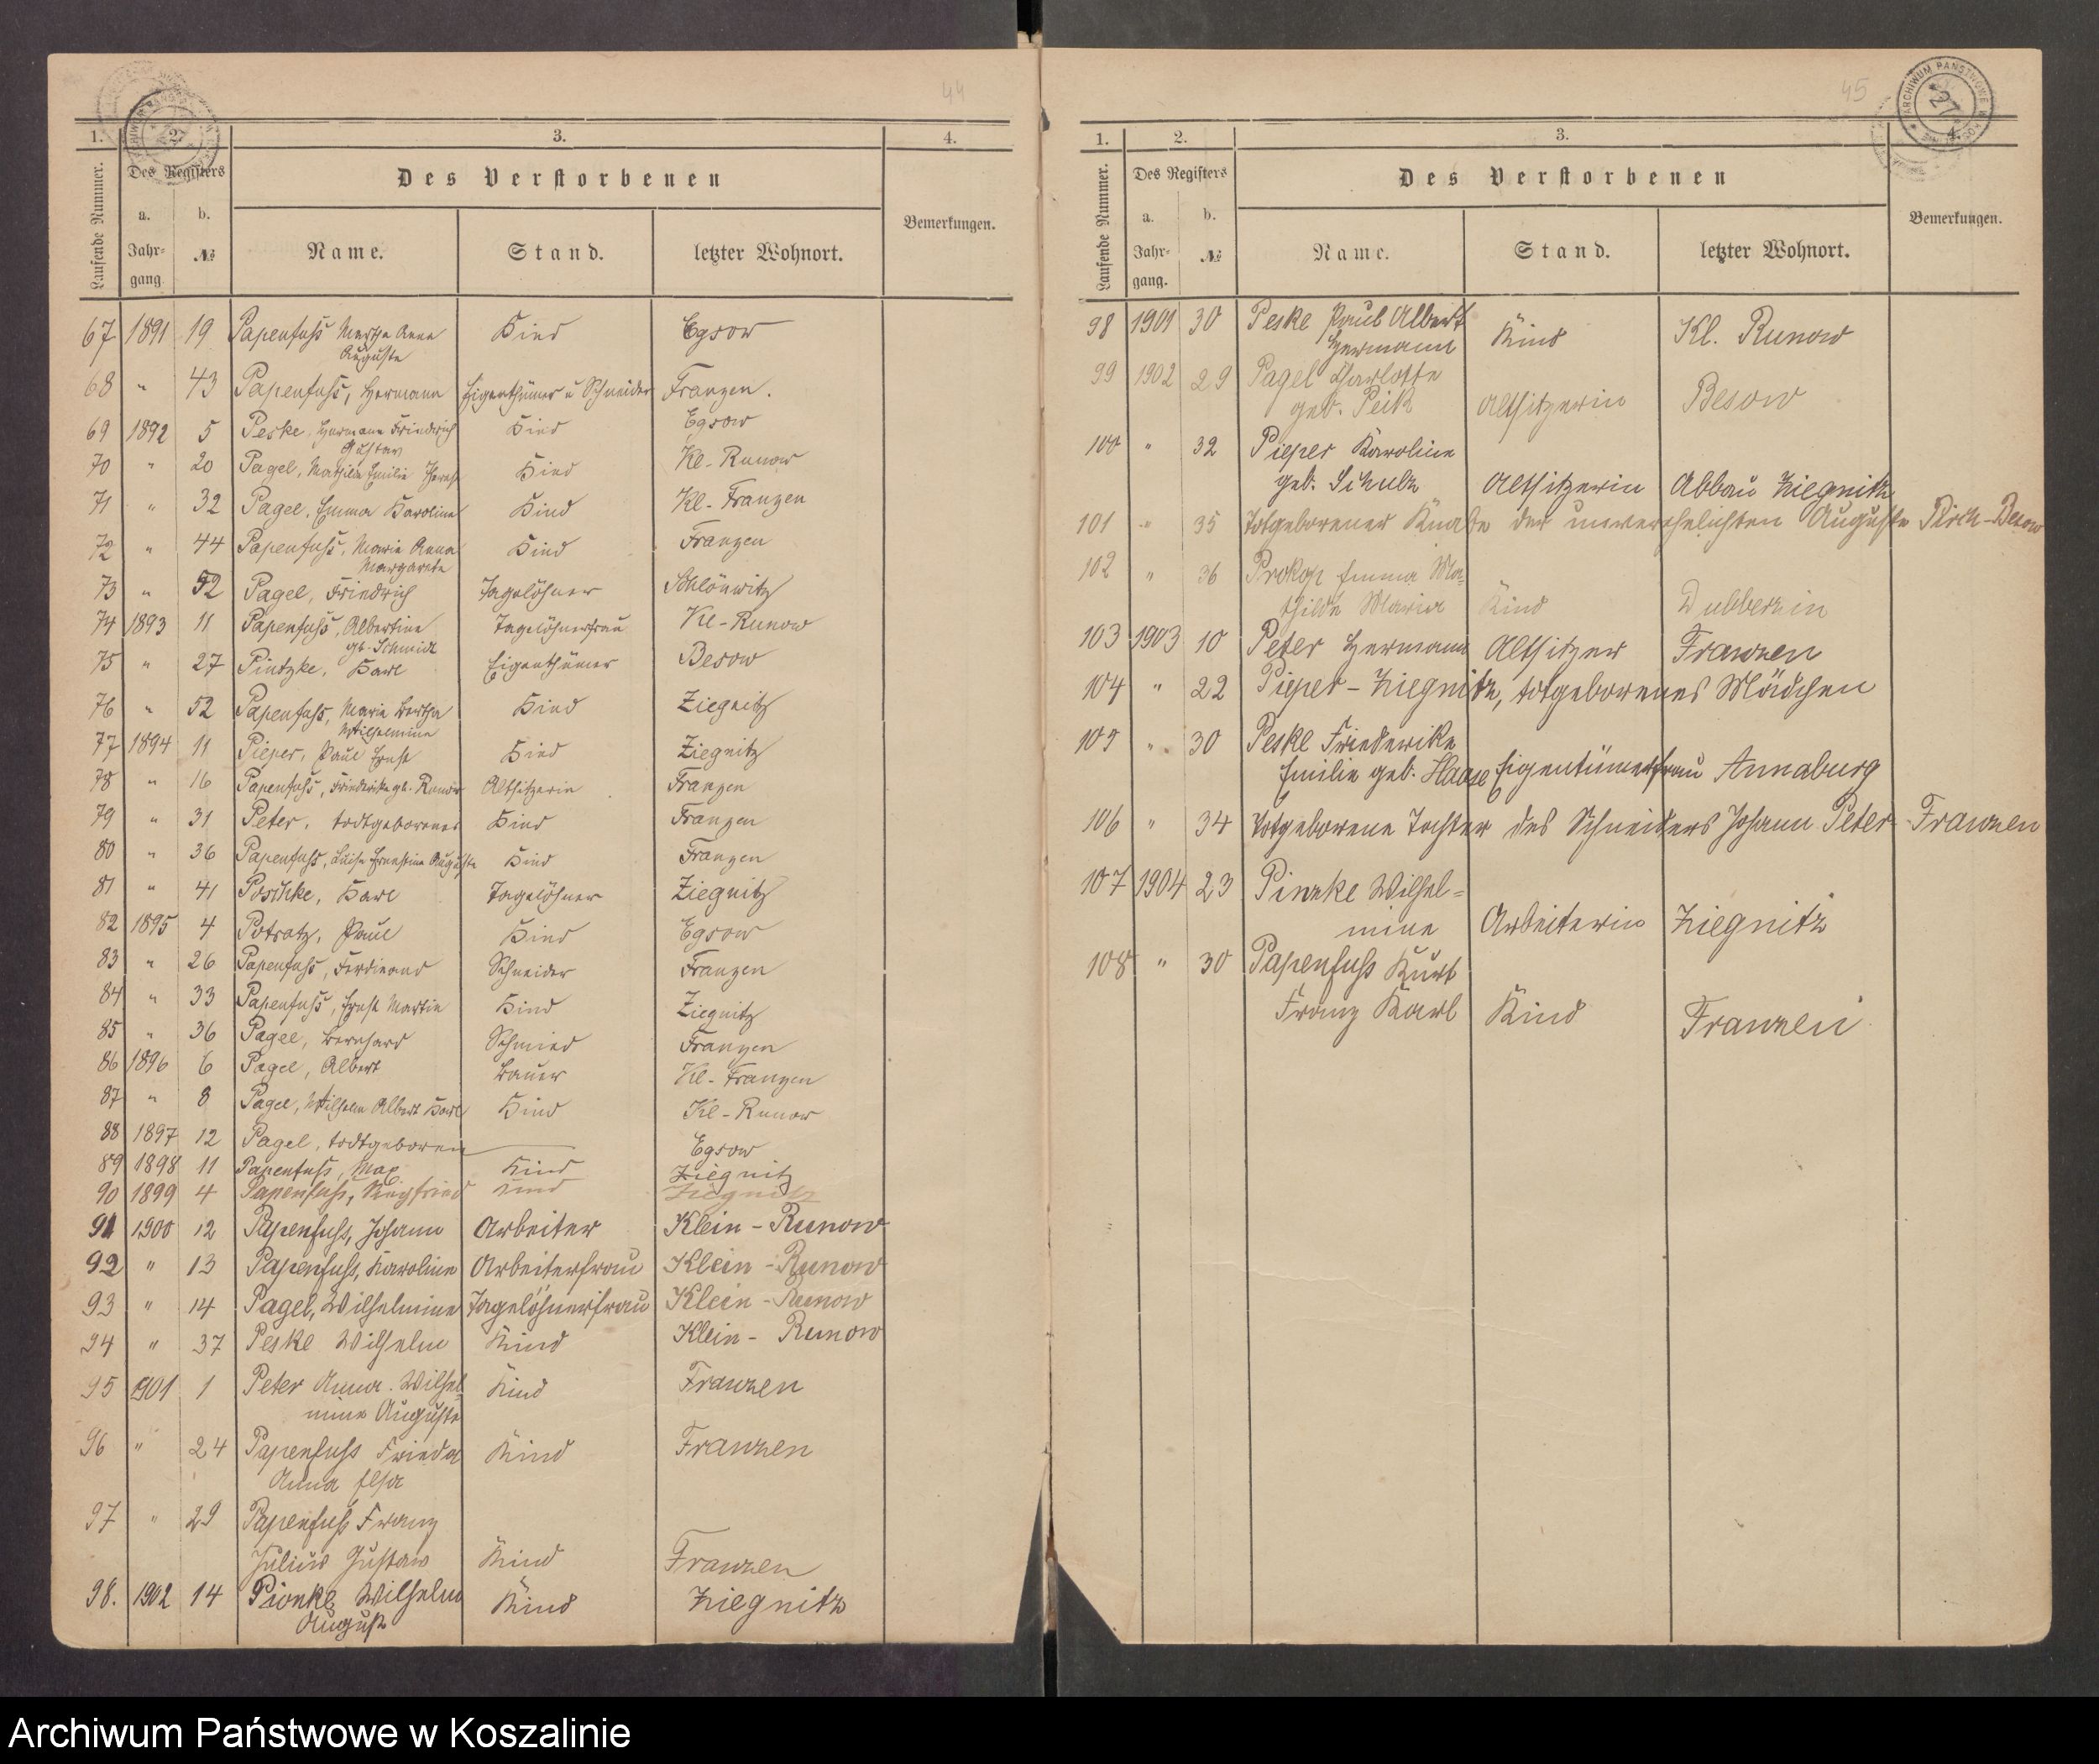 44
1. 2. 3. 4.
Laufende Nummer. Des Registers Des Verstorbenen Bemerkungen.
a. b.
Jahrgang № Name. Stand. letzter Wohnort.
67 1891 19 Papenfuß Martha Anna Kind Egsow
Auguste
68 " 43 Papenfuß, Hermann Eigenthümer u Schneider Franzen.
69 1892 5 Peske, Hermann Friedrich Kind Egsow
Gustav
70 " 20 Pagel, Mathilde Emilie Therese Kind Kl-Runow
71 " 32 Pagel, Emma Karoline Kind Kl-Franzen
72 " 44 Papenfuß, Marie Anna Kind Franzen
Margarete
73 " 52 Pagel, Friedrich Tagelöhner Schlönwitz
74 1893 11 Papenfuß, Albertine Tagelöhnerfrau Kl-Runow
gb. Schmidt
75 " 27 Pintzke, Karl Eigenthümer Besow
76 " 52 Papenfuß, Marie Bertha Kind Ziegnitz
Wilhelmine
77 1894 11 Pieper, Paul Ernst Kind Ziegnitz
78 " 16 Papenfuß, Friederike gb. Altsitzerin Franzen
79 " 31 Peter, todtgeborenes Kind Franzen
80 " 36 Papenfuß, Luise Ernestine Auguste Kind Franzen
81 " 41 Poschke, Karl Tagelöhner Ziegnitz
82 1895 4 Potratz, Paul Kind Egsow
83 " 26 Papenfuß, Ferdinand Schneider Franzen
84 " 33 Papenfuß, Ernst Martin Kind Ziegnitz
85 " 36 Pagel, Bernhard Schmied Franzen
86 1896 6 Pagel, Albert Bauer Kl-Franzen
87 " 8 Pagel, Wilhelm Albert Karl Kind Kl-Runow
88 1897 12 Pagel, todtgeboren Egsow
89 1898 11 Papenfuß, Max Kind Ziegnitz
90 1899 4 Papenfuß, Siegfried Kind Ziegnitz
91 1900 12 Papenfuß, Johann Arbeiter Klein-Runow
92 " 13 Papenfuß, Karoline Arbeiterfrau Klein-Runow
93 " 14 Pagel, Wilhelmine Tagelöhnerfrau Klein-Runow
94 " 37 Peske Wilhelm Kind Klein-Runow
95 1901 1 Peter Anna Wilhel- Kind Franzen
mine Auguste
96 " 24 Papenfuß Frieda Kind Franzen
Anna Elsa
97 " 29 Papenfuß Franz
Julius Gustav Kind Franzen
98. 1902 14 Pionke Wilhelm Kind Ziegnitz
August
45
ARCHIWUM PAŃSTWOWE W
27
1. 2. 3. 4.
Laufende Nummer. Des Registers Des Verstorbenen Bemerkungen.
a. b.
Jahrgang. № Name. Stand. letzter Wohnort.
98 1901 30 Peske Paul Albert Kind Kl. Runow
Hermann
99 1902 29 Pagel Charlotte
geb. Peik Altsitzerin Besow
100 " 32 Pieper Karoline
geb. Schulz Altsitzerin Abbau Ziegnitz
101 " 35 Totgeborener Knabe der unverehelichten Auguste Pirch-Besow
102 " 36 Prokop Emma Ma-
thilde Maria Kind Dubberzin
103 1903 10 Peter Hermann Altsitzer Franzen
104 " 22 Pieper-Ziegnitz, totgeborenes Mädchen
105 " 30 Peske Friederike
Emilie geb. Haase Eigentümerfrau Annaburg
106 " 34 Totgeborene Tochter des Schneiders Johann Peter-Franzen
107 1904 23 Pinzke Wilhel-
mine Arbeiterin Ziegnitz
108 " 30 Papenfuß Kurt
Franz Karl Kind Franzen
Archiwum Państwowe w Koszalinie